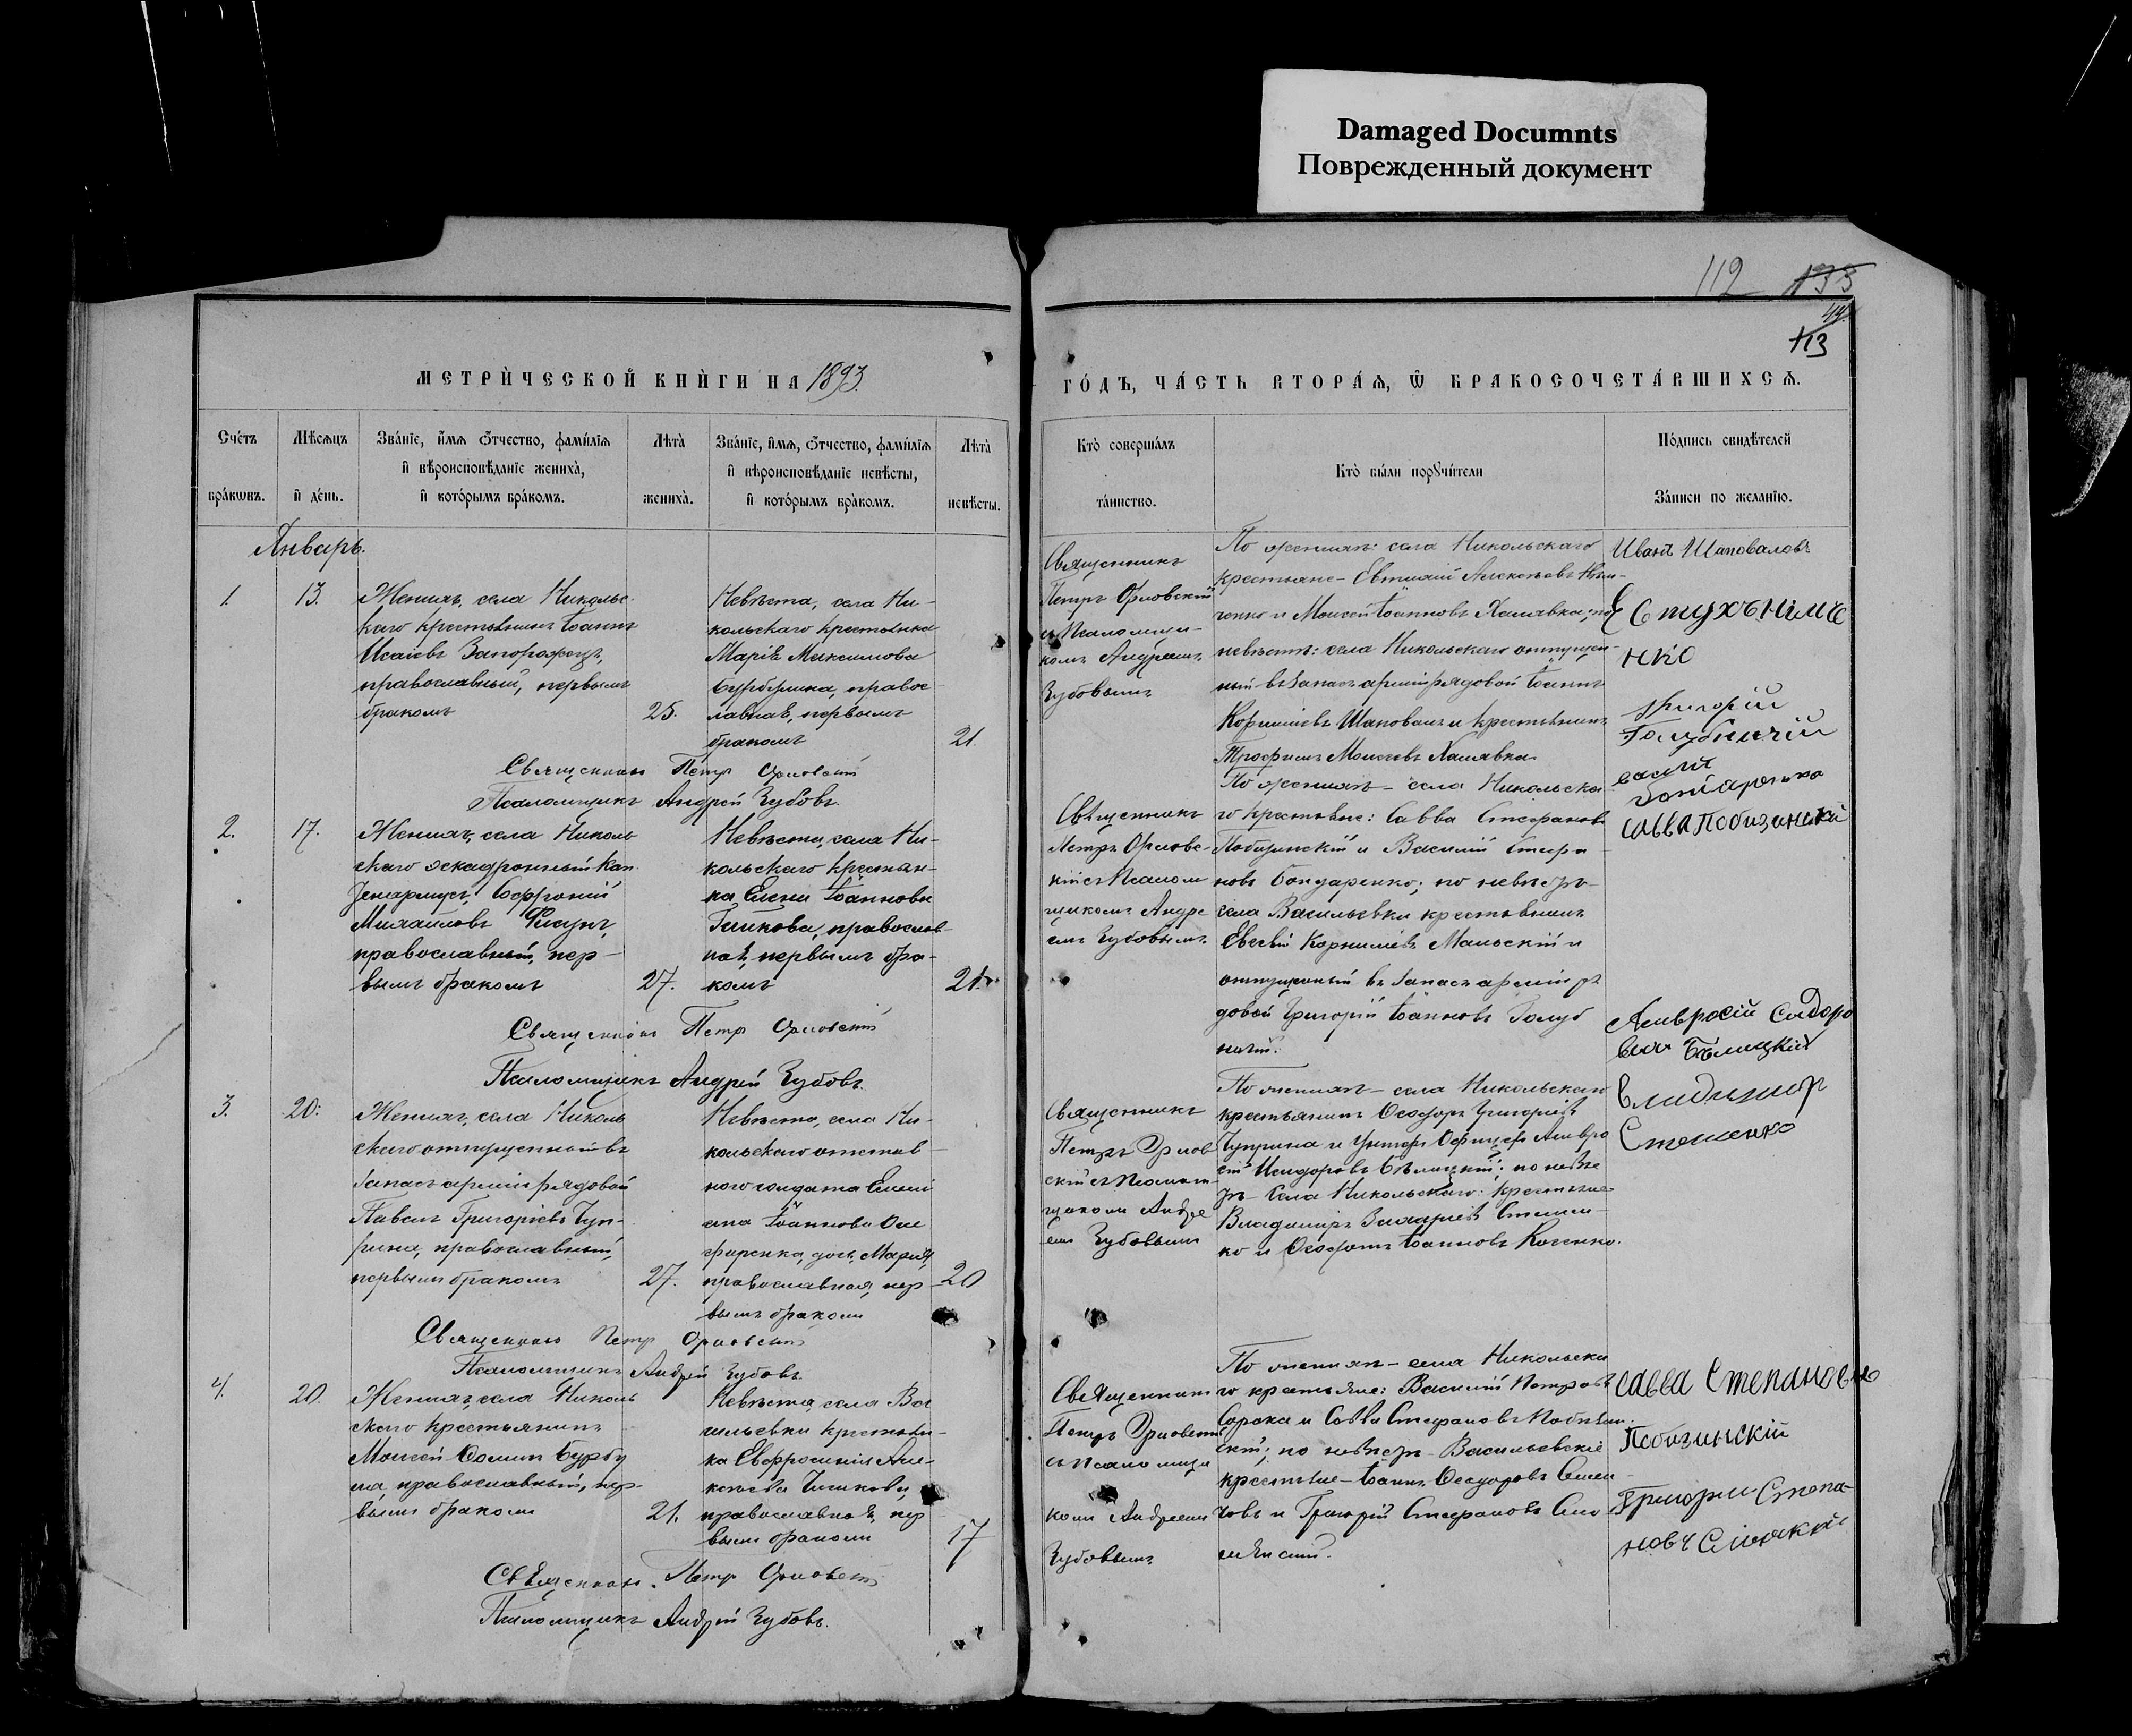 Damaged Documnts
Поврежденный документ
112 133
44.
113
МЕТРИ́ЧЕСКОЙ КНИ́ГИ НА 1893.
ГО́ДЪ, ЧА́СТЬ ВТОРА́Ѧ, Ѿ БРАКОСОЧЕТА́ВШИХСѦ.
Сче́тъ
бра́кѡвъ.
Мѣ́сѧцъ
и҆ де́нь.
Зва́нїе, и҆́мѧ ѻ҆́тчество, фами́лїѧ
и҆ вѣроисповѣ́данїе жениха̀,
и҆ кото́рымъ бра́комъ.
Лѣ́та
жениха̀.
Зва́нїе, и҆́мѧ, ѻ҆́тчество, фами́лїѧ
и҆ вѣроисповѣ́данїе невѣ́сты,
и҆ кото́рымъ бра́комъ.
Лѣ́та
невѣ́сты.
Кто̀ соверша́лъ
та́инство.
Кто̀ бы́ли порꙋчи́тели
По́дпись свидѣ́телей
За́писи по жела́нїю.
Январь.
1.
13.
Женихъ, села Никольс-
каго крестьянинъ Іоаннъ
Исаіевъ Запорожецъ,
православный, первымъ
бракомъ
25.
Невѣста, села Ни-
кольскаго крестьянка
Марія Максимова
Бурбушна, правос-
лавная, первымъ
бракомъ
21
Священникъ
Петръ Орловскій
съ Псаломщи-
комъ Андреемъ
Зубовымъ
По женихѣ: села Никольскаго
крестьяне - Евтихій Алексѣевъ Ним-
ченко и Моисей Іоанновъ Халявка; по
невѣстѣ: села Никольскаго отпущен-
ный въ запасъ арміи рядовой Іоаннъ
Корниліевъ Шаповалъ и крестьянинъ
Трофимъ Моисеевъ Халявка.
Иванъ Шаповаловъ
Естухъ Німче
нко
Священникъ Петръ Орловскій
Псаломщикъ Андрей Зубовъ.
2.
17.
Женихъ, села Николь
скаго эскадронный кап
тенармусъ, Софроній
Михайловъ
православный, пер-
вымъ бракомъ
27.
Невѣста, села Ни-
кольскаго крестьян-
ка Елена Іоаннова
православ
ная, первымъ бра-
комъ
21.
Священникъ
Петръ Орловс-
кій съ Псалом
щикомъ Андре
емъ Зубовымъ
По женихѣ - села Никольска-
го крестьяне: Савва Стефановъ
Побизинскій и Василій Стефа-
новъ Бондаренко; по невѣстѣ -
села Васильевки крестьянинъ
Евсевій Корниліевъ Мальскій и
отпущеный въ запасъ арміи ря
довой Григорій Іоанновъ Голуб
ничій.
Григорій
Голубничій
Василій
Бондаренко
Савва Побизинскій
Священникъ Петръ Орловскій
Псаломщикъ Андрей Зубовъ.
3.
20.
Женихъ, села Николь
скаго отпущенный въ
запасъ арміи рядовой
Павелъ Григоріевъ Чуп-
рина, православный,
первымъ бракомъ
27.
Невѣста, села Ни-
кольскаго отстав-
ного солдата Емелі
ана Іоаннова
дочь Марія,
православная, пер
вымъ бракомъ
20
Священникъ
Петръ Орлов
скій съ Псалом
щикомъ Андре
емъ Зубовымъ
По женихѣ - села Никольскаго
крестьянинъ Ѳеодоръ Григоріевъ
Чуприна и Унтеръ Офицеръ Амвро
сій Исидоровъ Бѣлицкій; по невѣс
тѣ - села Никольскаго: крестьяне
Владиміръ Захаріевъ Стешен-
ко и Ѳеофанъ Іоанновъ Коченко.
Амвросій Сидоро
вич Бѣлицкій
Владимир
Стешенко
Священникъ Петръ Орловскій
Псаломщикъ Андрей Зубовъ.
4.
20.
Женихъ, села Николь
скаго крестьянинъ
Моисей Ѳоминъ Бурбу
на, православный, пер-
вымъ бракомъ
21.
Невѣста, села Ва
сильевки крестьян-
ка Евфросинія Але-
ксѣева Чижкова,
православная, пер
вымъ бракомъ
17
Священникъ
Петръ Орловскій
съ Псаломщи
комъ Андреемъ
Зубовымъ
По женихѣ - села Никольска
го крестьяне: Василій Петровъ
Сорока и Савва Стефановъ Побизин
скій; по невѣстѣ - Васильевскіе
крестьяне - Іоаннъ Ѳеодоровъ Семен
човъ и Григорій Стефановъ
Савва Степановъ
Побизинскій
Григорий Степа-
новъ
Священникъ Петръ Орловскій
Псаломщикъ Андрей Зубовъ.